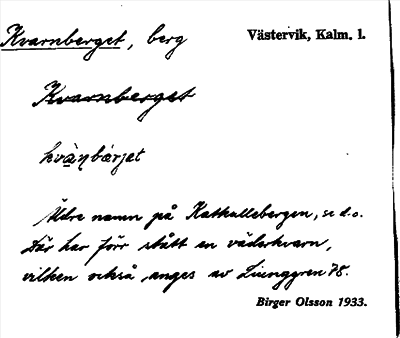 Kvarnberget, berg Västervik, Kalm. l.
Kvarnberget
kvàṇbárjet
Äldre namn på Kathallebergen, se d.o.
Där har förr stått en väderkvarn,
vilken också anges av Lienggren 78.
Birger Olsson 1933.